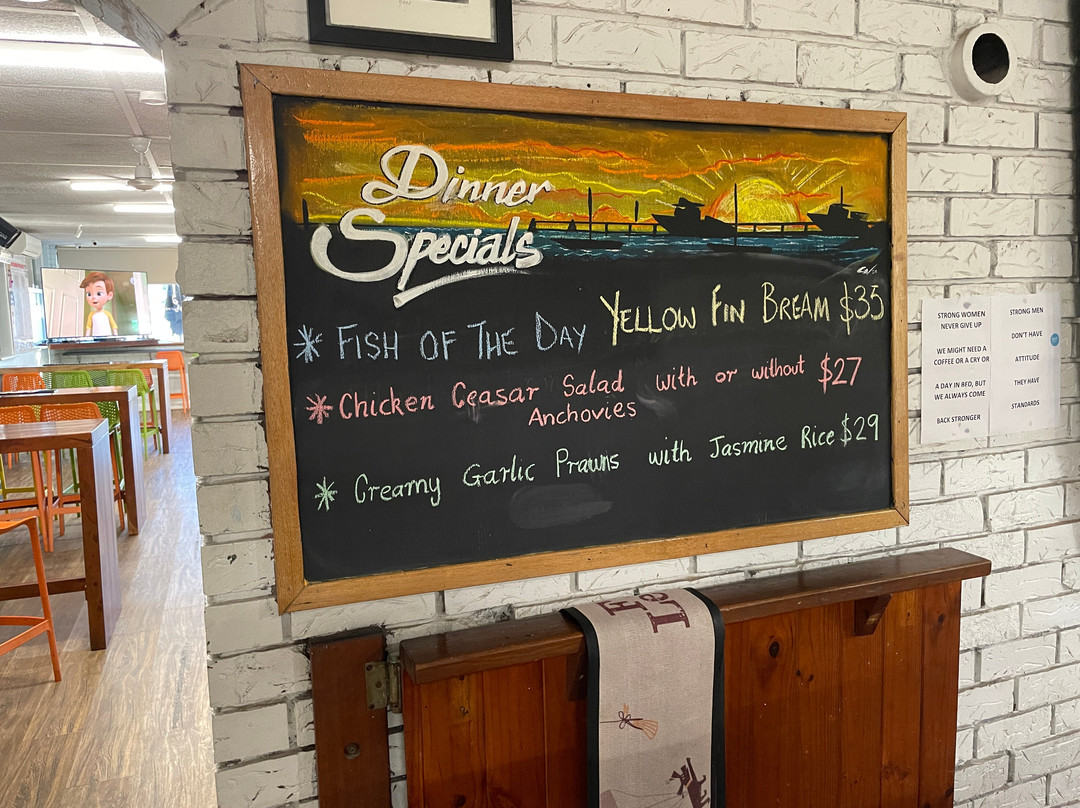 Dinner
Specials
* FISH OF THE DAY YELLOW FIN BREAM $35
* Chicken Ceasar Salad with or without $27
Anchovies
* Creamy Garlic Prawns with Jasmine Rice $29
STRONG WOMEN
NEVER GIVE UP
WE MIGHT NEED A
COFFEE OR A CRY OR
A DAY IN BED, BUT
WE ALWAYS COME
BACK STRONGER
STRONG MEN
DON'T HAVE
ATTITUDE
THEY HAVE
STANDARDS